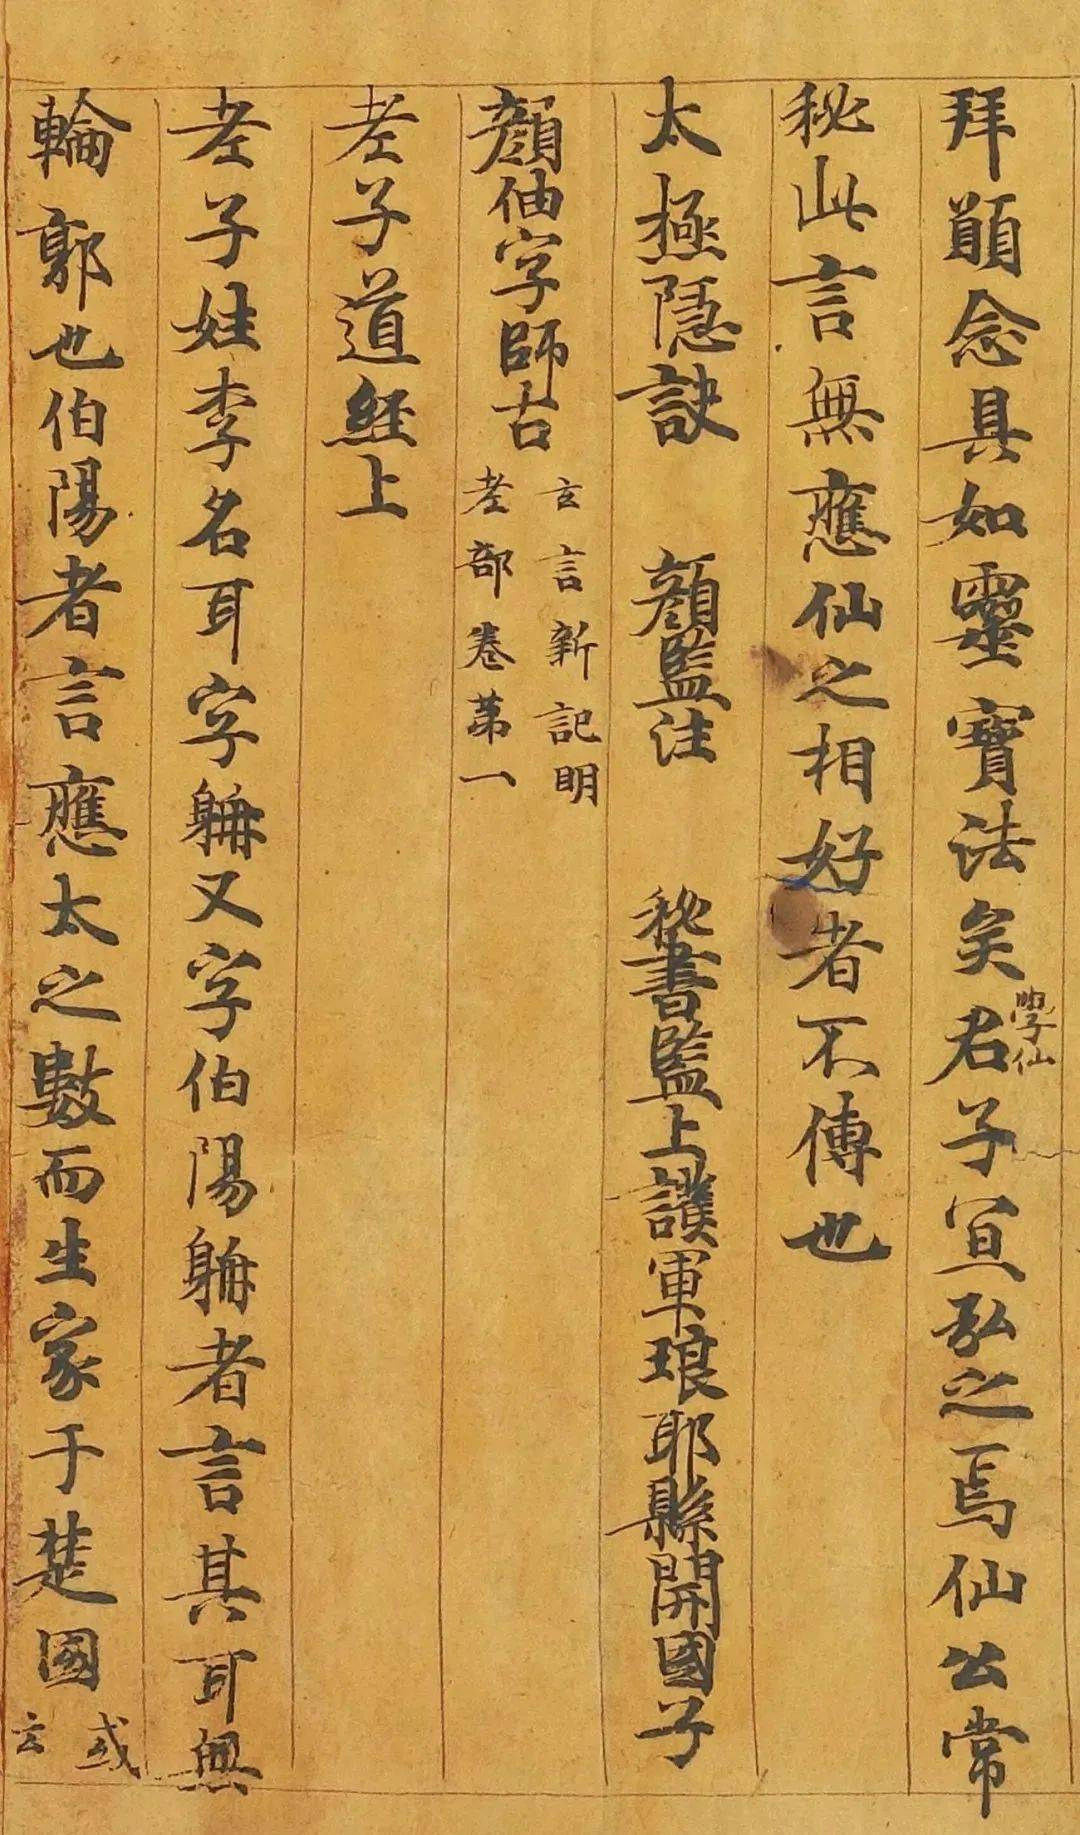 拜願念具如靈寶法矣學仙君子宣弘之焉仙公常
秘此言無應仙之相好者不傳也
太極隱訣　顏監注　秘書監上護軍琅耶縣開國子
顏伷字師古
玄言新記明
老部卷第一
老子道經上
老子姓李名耳字躭又字伯陽躭者言其耳無
輪郭也伯陽者言應太之數而生家于楚國
或
云